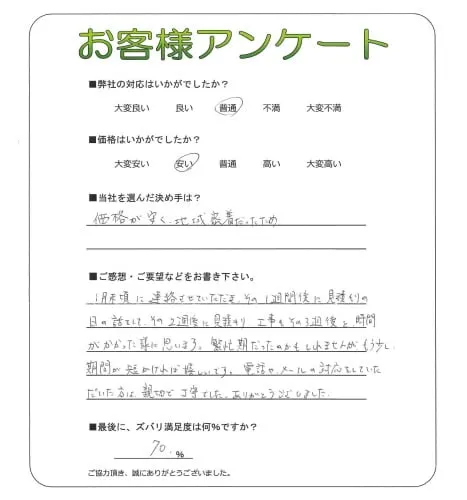 お客様アンケート
■弊社の対応はいかがでしたか？
大変良い 良い 普通 不満 大変不満
■価格はいかがでしたか？
大変安い 安い 普通 高い 大変高い
■当社を選んだ決め手は？
価格が安く、地域密着だったため
■ご感想・ご要望などをお書き下さい。
1月末頃に連絡させていただき、その1週間後に見積もりの
日の話をして、その2週後に見積もり 工事もその3週後と時間
がかかった様に思います。繁忙期だったのかもしれませんがもう少し
期間が短かければ嬉しいです。電話やメールの対応をしていた
だいた方は、親切で丁寧でした。ありがとうございました。
■最後に、ズバリ満足度は何%ですか？
70.%
ご協力頂き、誠にありがとうございました。